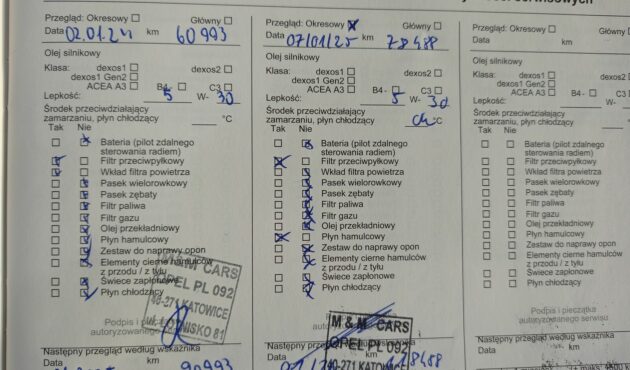 Przegląd: Okresowy Główny
Data 02.01.24 km 60993
Olej silnikowy
Klasa: dexos1 dexos2
dexos1 Gen2
ACEA A3 B4 - C3
Lepkość: 5 W- 30
Środek przeciwdziałający
zamarzaniu, płyn chłodzący °C
Tak Nie
Bateria (pilot zdalnego
sterowania radiem)
Filtr przeciwpyłkowy
Wkład filtra powietrza
Pasek wielorowkowy
Pasek zębaty
Filtr paliwa
Filtr gazu
Olej przekładniowy
Płyn hamulcowy
Zestaw do naprawy opon
Elementy cierne hamulców
z przodu / z tyłu
Świece zapłonowe
Płyn chłodzący
M&M CARS
OPEL PL 092
40-271 KATOWICE
UL. LOTNISKO 81
Podpis i
autoryzowanego
Następny przegląd według wskaźnika
Data km
90993
Przegląd: Okresowy Główny
Data 07/01/25 km 78488
Olej silnikowy
Klasa: dexos1 dexos2
dexos1 Gen2
ACEA A3 B4 - C3
Lepkość: 5 W- 30
Środek przeciwdziałający
zamarzaniu, płyn chłodzący °C
Tak Nie
Bateria (pilot zdalnego
sterowania radiem)
Filtr przeciwpyłkowy
Wkład filtra powietrza
Pasek wielorowkowy
Pasek zębaty
Filtr paliwa
Filtr gazu
Olej przekładniowy
Płyn hamulcowy
Zestaw do naprawy opon
Elementy cierne hamulców
z przodu / z tyłu
Świece zapłonowe
Płyn chłodzący
M & M CARS
OPEL PL 092
40-271 KATOWICE
Następny przegląd według wskaźnika
Data km
118488
Przegląd: Okresowy Główny
Data km
Olej silnikowy
Klasa: dexos1 dexos2
dexos1 Gen2
ACEA A3 B4 - C3
Lepkość: W-
Środek przeciwdziałający
zamarzaniu, płyn chłodzący °C
Tak Nie
Bateria (pilot zdalnego
sterowania radiem)
Filtr przeciwpyłkowy
Wkład filtra powietrza
Pasek wielorowkowy
Pasek zębaty
Filtr paliwa
Filtr gazu
Olej przekładniowy
Płyn hamulcowy
Zestaw do naprawy opon
Elementy cierne hamulców
z przodu / z tyłu
Świece zapłonowe
Płyn chłodzący
Podpis i pieczątka
autoryzowanego serwisu
Następny przegląd według wskaźnika
Data km